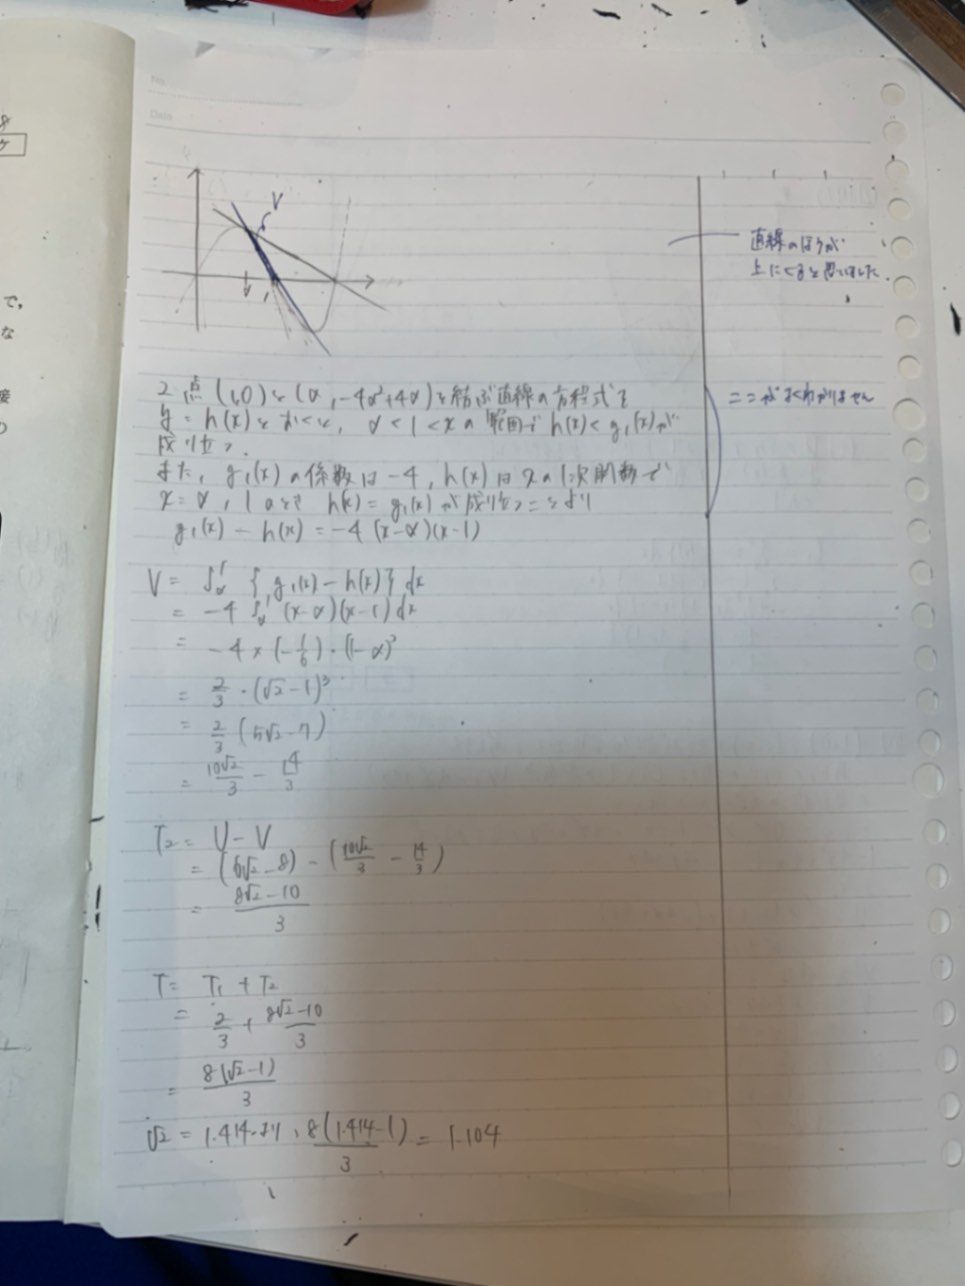 No.
Date
V
α
1
直線のほうが
上にくると思いました.
2点(1,0)と(α, -4α²+4α)を結ぶ直線の方程式を
y = h(x)とおくと, α<1<xの範囲で h(x)<g₁(x)が
成り立つ.
また, g₁(x)の係数は-4, h(x)はxの1次関数で
x=α, 1のとき h(x)=g₁(x)が成り立つことより
g₁(x) - h(x) = -4(x-α)(x-1)
ここがよくわかりません
V = ∫α¹ {g₁(x) - h(x)} dx
= -4 ∫α¹ (x-α)(x-1)dx
= -4 × (-1/6)・(1-α)³
= 2/3・(√2-1)³
= 2/3 (5√2-7)
= 10√2/3 - 14/3
T₂ = U - V
= (6√2-8) - (10√2/3 - 14/3)
= 8√2-10/3
T = T₁ + T₂
= 2/3 + 8√2-10/3
= 8(√2-1)/3
√2 = 1.414より, 8(1.414-1)/3 = 1.104
で,
な
接
の